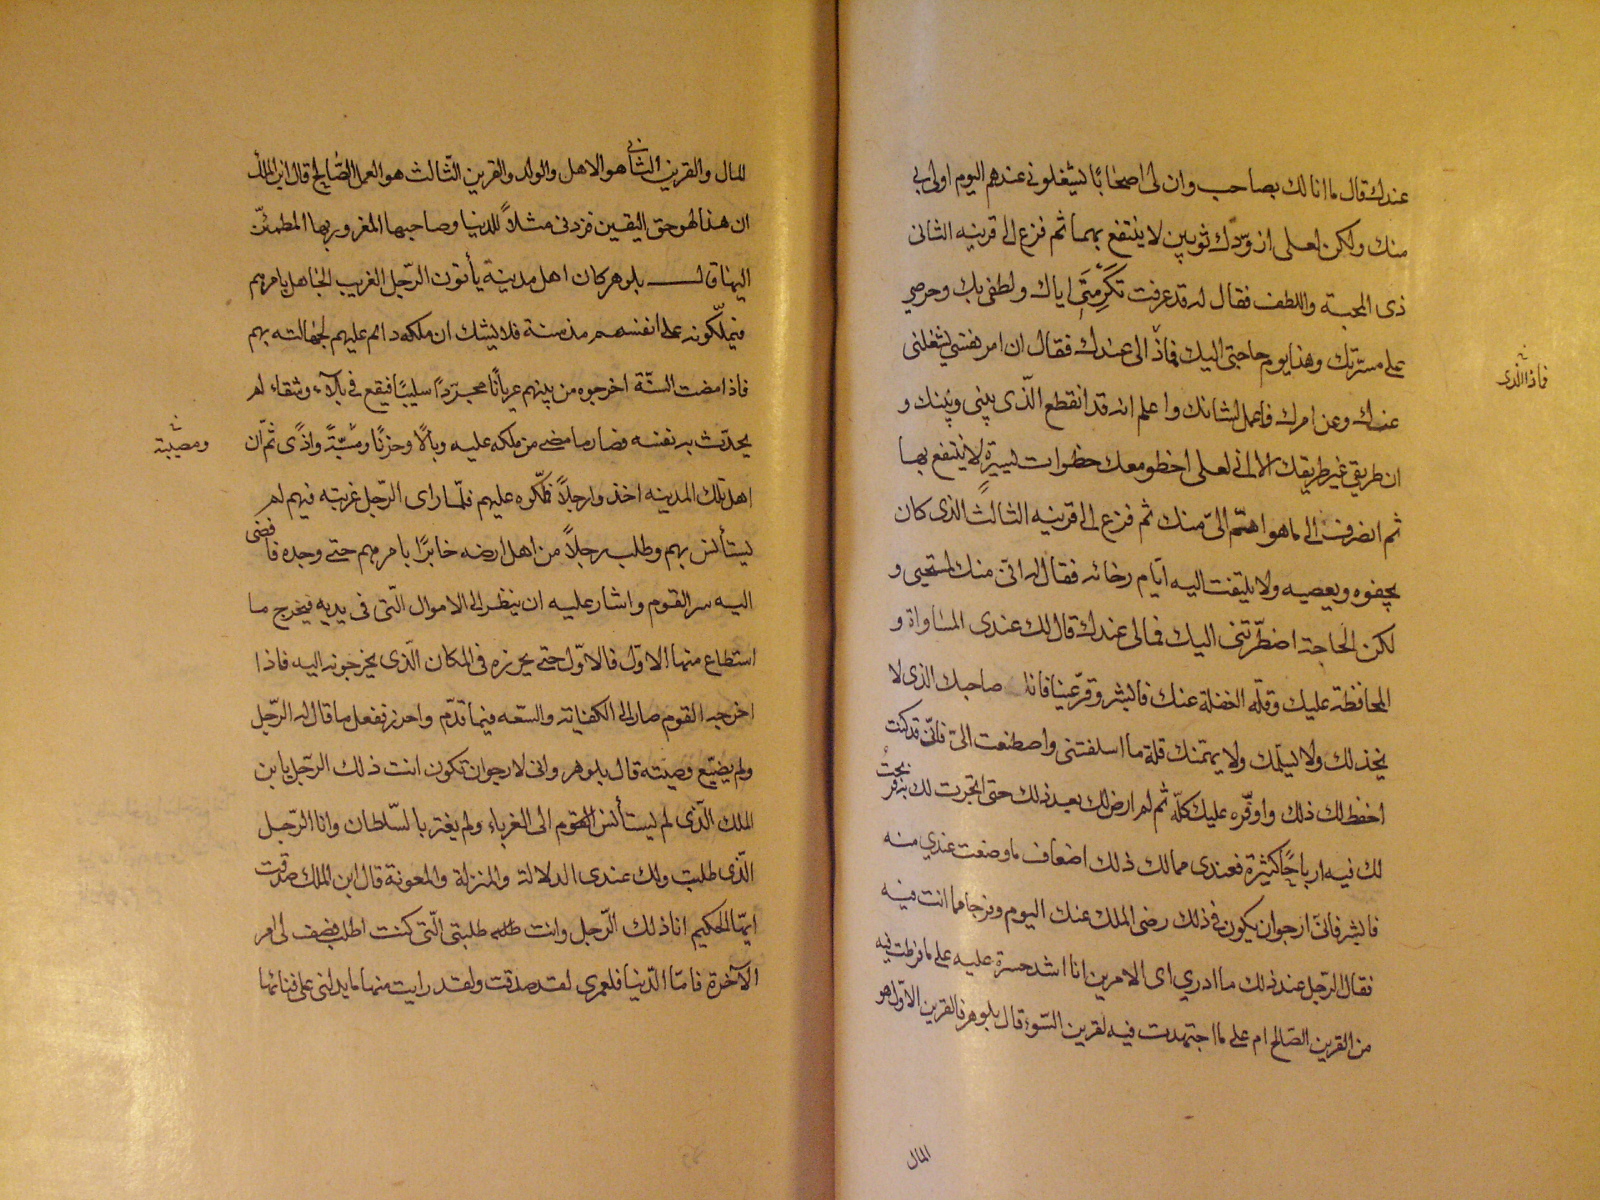 عندك قال ما انا لك بصاحب وان لى اصحابًا يشغلونى عندهم اليوم اولى بى
منك ولكن لعلى ازودك ثوبين لا ينتفع بهما ثم فزع الى قرينه الثانى
ذى المحبة واللطف فقال له قد عرفت تكرمتى اياك ولطفى بك وحرصي
على مسرتك وهذا يوم حاجتى اليك فماذا لى عندك فقال ان امر نفسي يشغلنى
عنك وعن امرك فاعمل لشانك واعلم انه قد انقطع الّذى بينى وبينك و
ان طريقي غير طريقك الا انى لعلى اخطو معك خطوات يسيرة لا ينتفع بها
ثم انصرف الى ما هو اهتم الىّ منك ثم فزع الى قرينه الثالث الذى كان
يجفوه ويعصيه ولا يلتفت اليه ايّام رخائه فقال له انى منك لمستحيى و
لكن الحاجة اضطّرتنى اليك فمالى عندك قال لك عندى المساواة و
المحافظة عليك وقلّه الغفلة عنك فابشر وقرّ عينا فانا صاحبك الذى لا
يخذلك ولا يسلّمك ولا يهمّنك قلة ما اسلفتنى واصطنعت الىّ فانّى قد كنت
احفظ لك ذلك واوفّره عليك كلّه ثم لم ارض لك بعد ذلك حتى اتجرت لك به فربحتُ
لك فيه ارباحًا كثيرة فعندى ممالك ذلك اضعاف ما وضعت عندي منه
فابشر فانّى ارجو ان يكون فى ذلك رضى الملك عنك اليوم وفرجا مما انت فيه
فقال الرّجل عند ذلك ما ادري اى الامرين انا اشد حسرة عليه على ما فرطت فيه
من القرين الصّالح ام على ما اجتهدت فيه لقرين السّوء قال بلوهر فالقرين الاوّل هو
المال
فاذا الّذى
المال والقرين الثانى هو الاهل والولد والقرين الثّالث هو العمل الصّالح قال ابن الملك
ان هذا لهو حق اليقين فزدنى مثلاً للدنيا وصاحبها المغرور بها المطمئنّ
اليها قال بلوهر كان اهل مدينة يأتون الرّجل الغريب الجاهل بامرهم
فيملّكونه على انفسهم سنة فلا يشك ان ملكه دائم عليهم لجهالته بهم
فاذا مضت السّنة اخرجوه من بينهم عريانًا مجرّدًا سليبًا فيقع فى بلآء وشقاء لم
يحدّث به نفسه فصار ما مضى من ملكه عليه وبالًا وحزنًا واذًى ثمّ ان
ومصيبة
اهل تلك المدينه اخذوا رجلاً فملّكوه عليهم فلمّا راى الرّجل غربته فيهم لم
يستأنس بهم وطلب رجلاً من اهل ارضه خابرًا بامرهم حتى وجده فافضى
اليه سر القوم واشار عليه ان ينظر الى الاموال الّتى فى يديه فيخرج ما
استطاع منها الاوّل فالاوّل حتى يحرزه فى المكان الّذى يخرجونه اليه فاذا
اخرجه القوم صار الى الكفاية والسّعه فيما قدّم واحرز ففعل ما قال له الرّجل
ولم يضيّع وصيّته قال بلوهر وانى لارجو ان تكون انت ذلك الرّجل يا بن
الملك الّذى لم يستأنس الى الغرباء ولم يغتر بالسّلطان وانا الرّجل
الّذى طلبت ولك عندى الدلالة والمنزلة والمعونة قال ابن الملك صدقت
ايّها الحكيم انا ذلك الرّجل وانت طلبتى الّتى كنت اطلب فصف لى امر
الآخرة فامّا الدّنيا فلعمرى لقد صدقت ولقد رايت منها ما يدلنى على فنائها